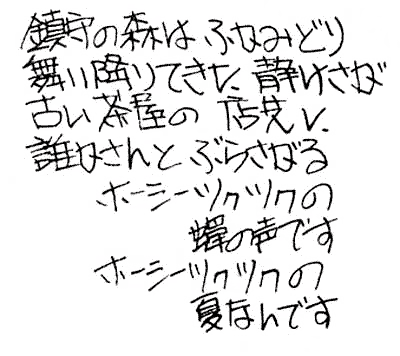 鎮守の森は ふかみどり
舞い降りてきた 静けさが
古い茶屋の 店先に
誰かさんと ぶらさがる
ホーシーツクツクの
蝉の声です
ホーシーツクツクの
夏なんです